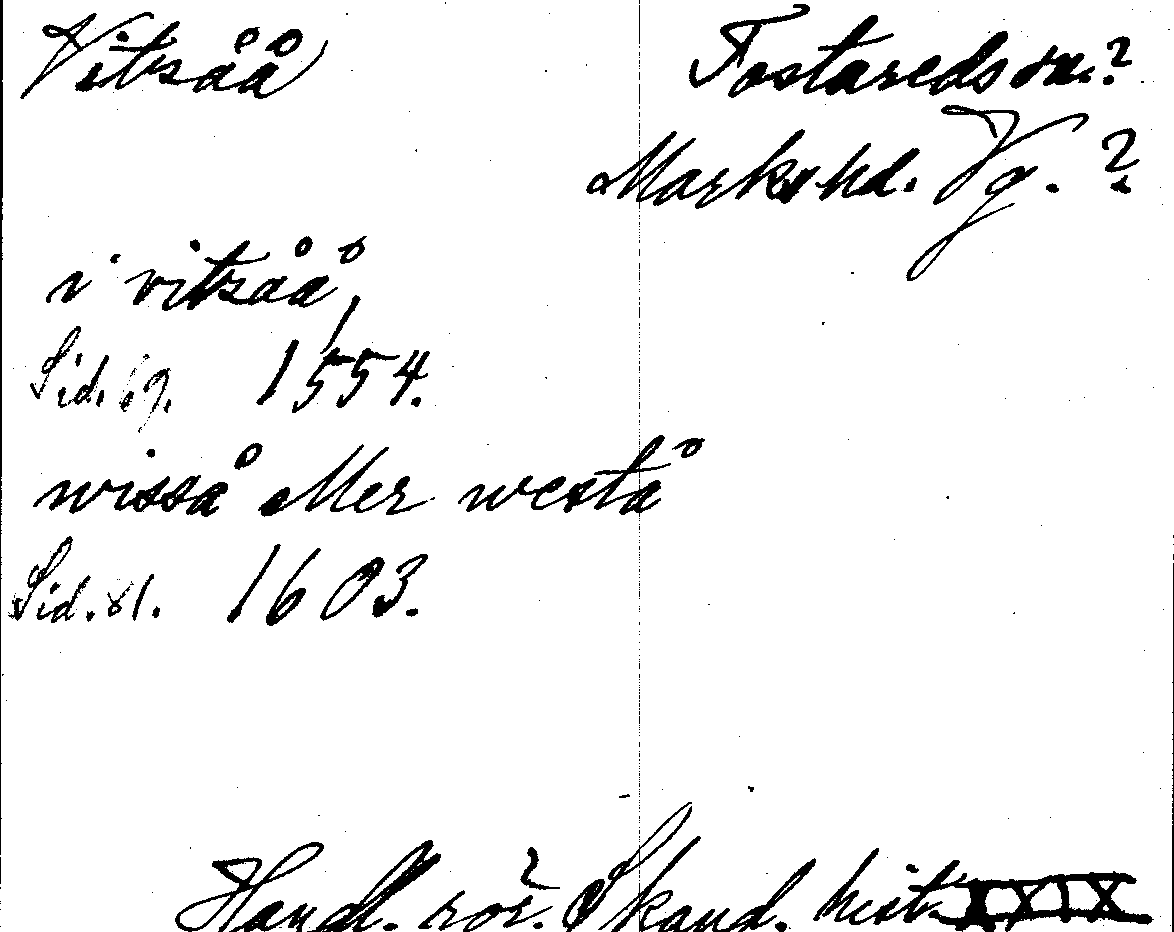 Vitsåå) Fostareds sn.?
Marks hd. Vg. ?
i vitsåå,
Sid. 69. 1554.
wisså eller westå
Sid. 81. 1603.
Handl. rör. Skand. hist. XXIX